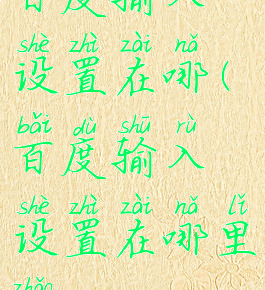 百度输入
shè zhì zài nǎ
设置在哪(
bǎi dù shū rù
百度输入
shè zhì zài nǎ lǐ
设置在哪里
zhǎo